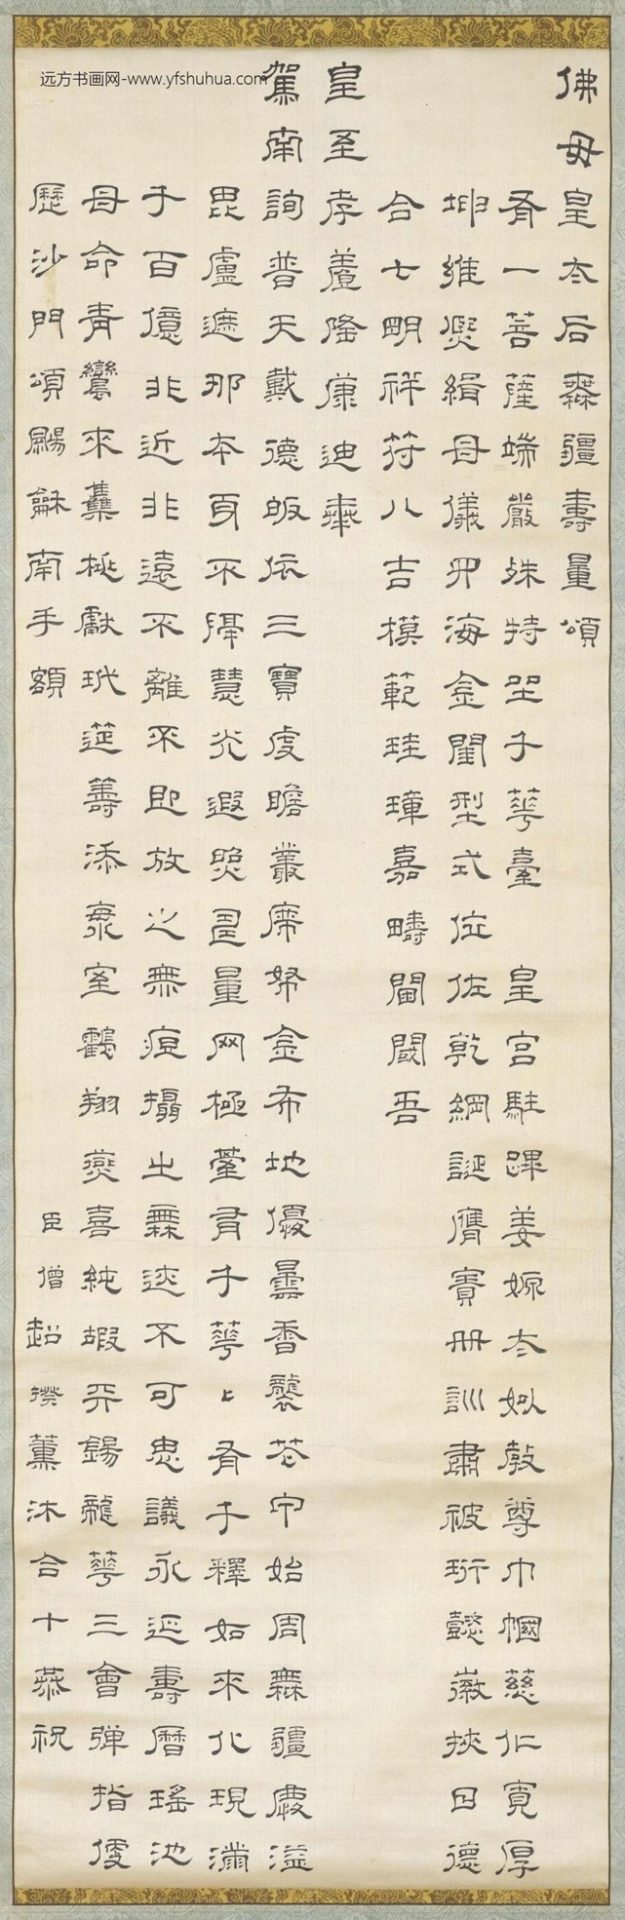 佛母皇太后無疆壽量頌
有一菩薩端嚴殊特坐千華臺 皇宮駐蹕姜嫄太姒教尊巾幗慈仁寬厚
坤維熙緝母儀四海金閨型式位佐乾綱誕膺寶冊訓肅被珩懿徽挾日德
合七明祥符八吉模範珪璋嘉疇閫閾吾
皇至孝養隆康迪奉
駕南詢普天戴德皈依三寶虔瞻叢席布金布地優曇香襲花甲始周無疆慶溢
毘盧遮那本有不隔慧光遐照量罔極臺有千華上有千釋如來化現滿
千百億非近非遠不離不即放之無痕攝之無迹不可思議永延壽曆瑤池
母命青鸞來集桃獻玳筵籌添室鶴翔燕喜純嘏再錫龍華三會彈指便
歷沙門頌颺龢南手額 臣僧超揆薰沐合十恭祝
远方书画网-www.yfshuhua.com